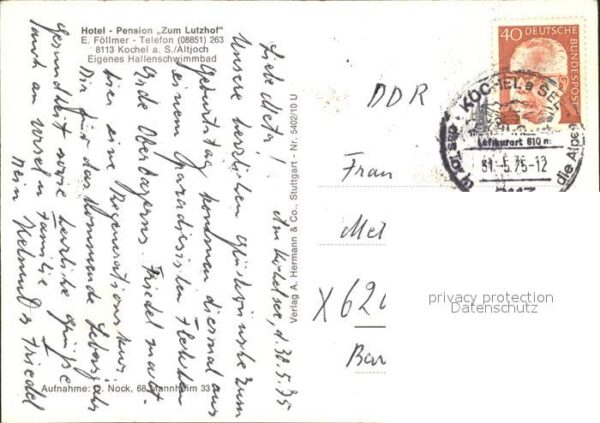 Hotel - Pension „Zum Lutzhof"
E. Föllmer - Telefon (08851) 263
8113 Kochel a. S./Altjoch
Eigenes Hallenschwimmbad
Am Kochelsee, d. 30.5.75
Liebe Meta!
Unsere herzlichen Glückwünsche zum
Geburtstag kommen diesmal aus
einem paradiesischen Fleckchen
Erde Oberbayerns. Friedel macht
hier eine Regenerationskur.
Dir für das kommende Lebensjahr
Gesundheit sowie herzliche Grüße
auch an Ursel u. Familie
Dein Helmut u. Friedel
Aufnahme: O. Nock, 68 Mannheim 33
Verlag A. Hermann & Co., Stuttgart - Nr. 5402/10 U
40 DEUTSCHE BUNDESPOST
KOCHEL a SEE
Luftkurort 610 m
31.-5.75-12
das Tor in die Alpen
DDR
Frau
Met
X 620
Bar
privacy protection
Datenschutz